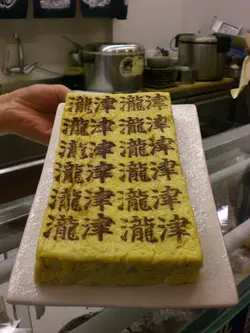 瀧津 瀧津
瀧津 瀧津
瀧津 瀧津
瀧津 瀧津
瀧津 瀧津
瀧津 瀧津